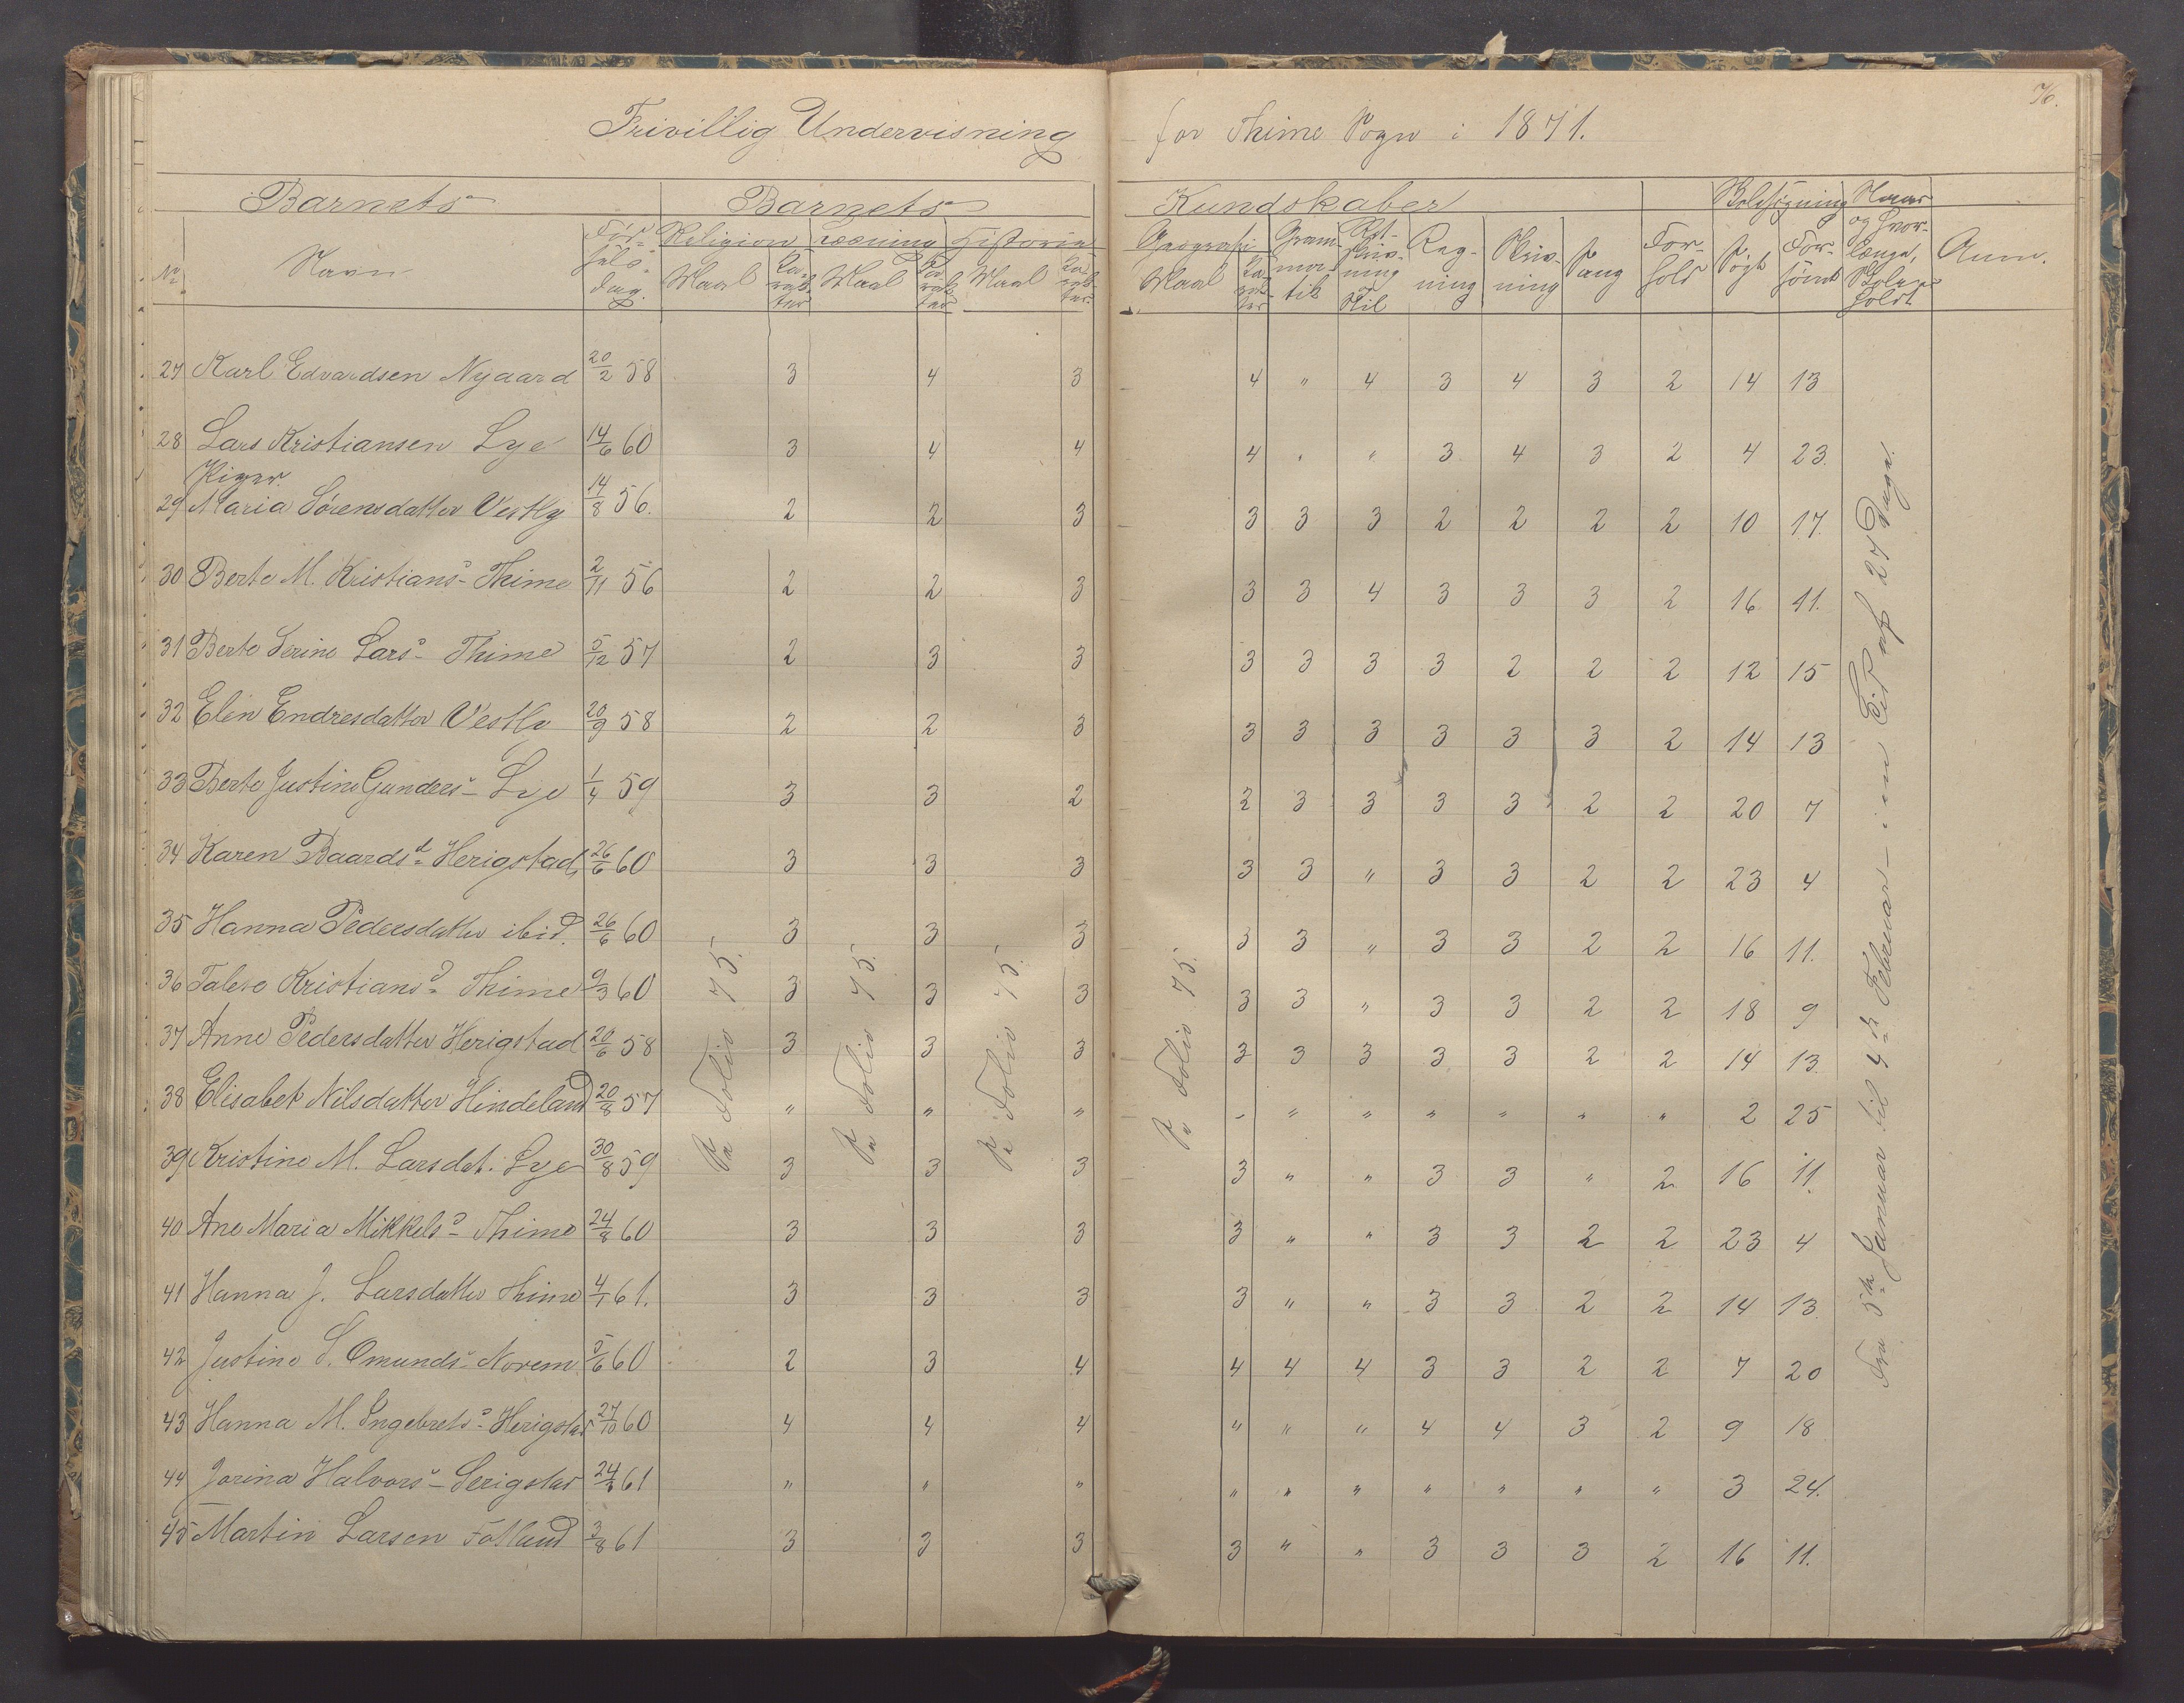 76.
Frivillig Undervisning for Thime Sogn i 1871.
Barnets Barnets Kundskaber Skolesøgning Naar
No Navn Fød- sels- dag Religion Læsning Historie Geografi Gram- ma- tik Ret- skriv- ning og Stil Reg- ning Skriv- ning Sang For- hold Søgt For- sømt og hvor- længe Skolen holdt Anm.
Maal Ka- rak- ter Maal Ka- rak- ter Maal Ka- rak- ter Maal Ka- rak- ter
27 Karl Edvardsen Nygaard 20/2 58 3 4 3 4 " 4 3 4 3 2 14 13
28 Lars Kristiansen Lye 14/6 60 3 4 4 4 " " 3 4 3 2 4 23
Piger
29 Maria Sørensdatter Vestly 14/8 56. 2 2 3 3 3 3 2 2 2 2 10 17.
30 Berte M. Kristiansd- Thime 2/11 56 2 2 3 3 3 4 3 3 3 2 16 11.
31 Berte Serine Larsd- Thime 5/12 57 2 3 3 3 3 3 3 2 2 2 12 15
32 Elen Endresdatter Vestly 20/9 58 2 2 3 3 3 3 3 3 3 2 14 13
33 Berte Justine Gunders- Lye 1/4 59 3 3 2 2 3 3 3 3 2 2 20 7
34 Karen Baardsd- Herigstad 26/6 60 3 3 3 3 3 " 3 3 2 2 23 4
35 Hanna Pedersdatter ibid. 26/6 60 3 3 3 3 3 " 3 3 2 2 16 11.
36 Talese Kristiansd- Thime 9/3 60 3 3 3 3 3 " 3 3 2 2 18 9
37 Anne Pedersdatter Herigstad 20/6 58 3 3 3 3 3 3 3 3 2 2 14 13.
38 Elisabet Nilsdatter Hindeland 20/8 57 " " " " " " " " " " 2 25
39 Kristine M. Larsdat. Lye 30/8 59 3 3 3 3 " " 3 3 " 2 16 11.
40 Ane Maria Mikkelsd- Thime 24/8 60 3 3 3 3 " " 3 3 2 2 23 4
41 Hanna J. Larsdatter Thime 4/1 61. 3 3 3 3 " " 3 3 2 2 14 13
42 Justine S. Omunds- Norem 5/6 60 2 3 4 4 4 4 3 3 2 2 7 20
43 Hanna M. Ingebretsd- Herigstad 27/10 60 4 4 4 " " " 4 4 3 2 9 18
44 Jorina Halvors- Serigstad 24/8 61 " " " " " " " " " " 3 24.
45 Martin Larsen Fotland 3/8 61 3 3 3 3 " " 3 3 3 2 16 11.
Paa Folio 75.
Paa Folio 75.
Paa Folio 75.
Paa Folio 75.
Fra 5te Januar til 4de Februar - i en Tid af 27 Dage.